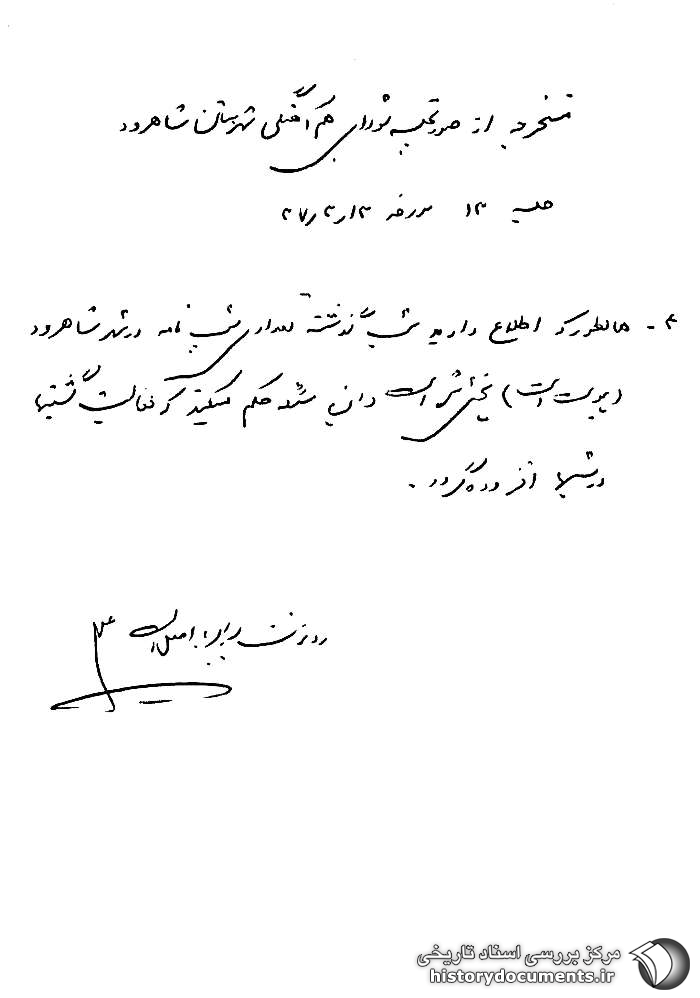 مستخرجه از صورتجلسه شورای هم آهنگی شهرستان شاهرود
جلسه ۱۳ مورخه ۳۷/۳/۱۳
۴- همانطوریکه اطلاع دارید شب گذشته تعدادی شب نامه در شهر شاهرود
(پیوست است) پخش شده است حکم میکند که فعالیت گشتیها
در شبها افزوده گردد.
رونوشت برابر با اصل است
مرکز بررسی اسناد تاریخی
historydocuments.ir